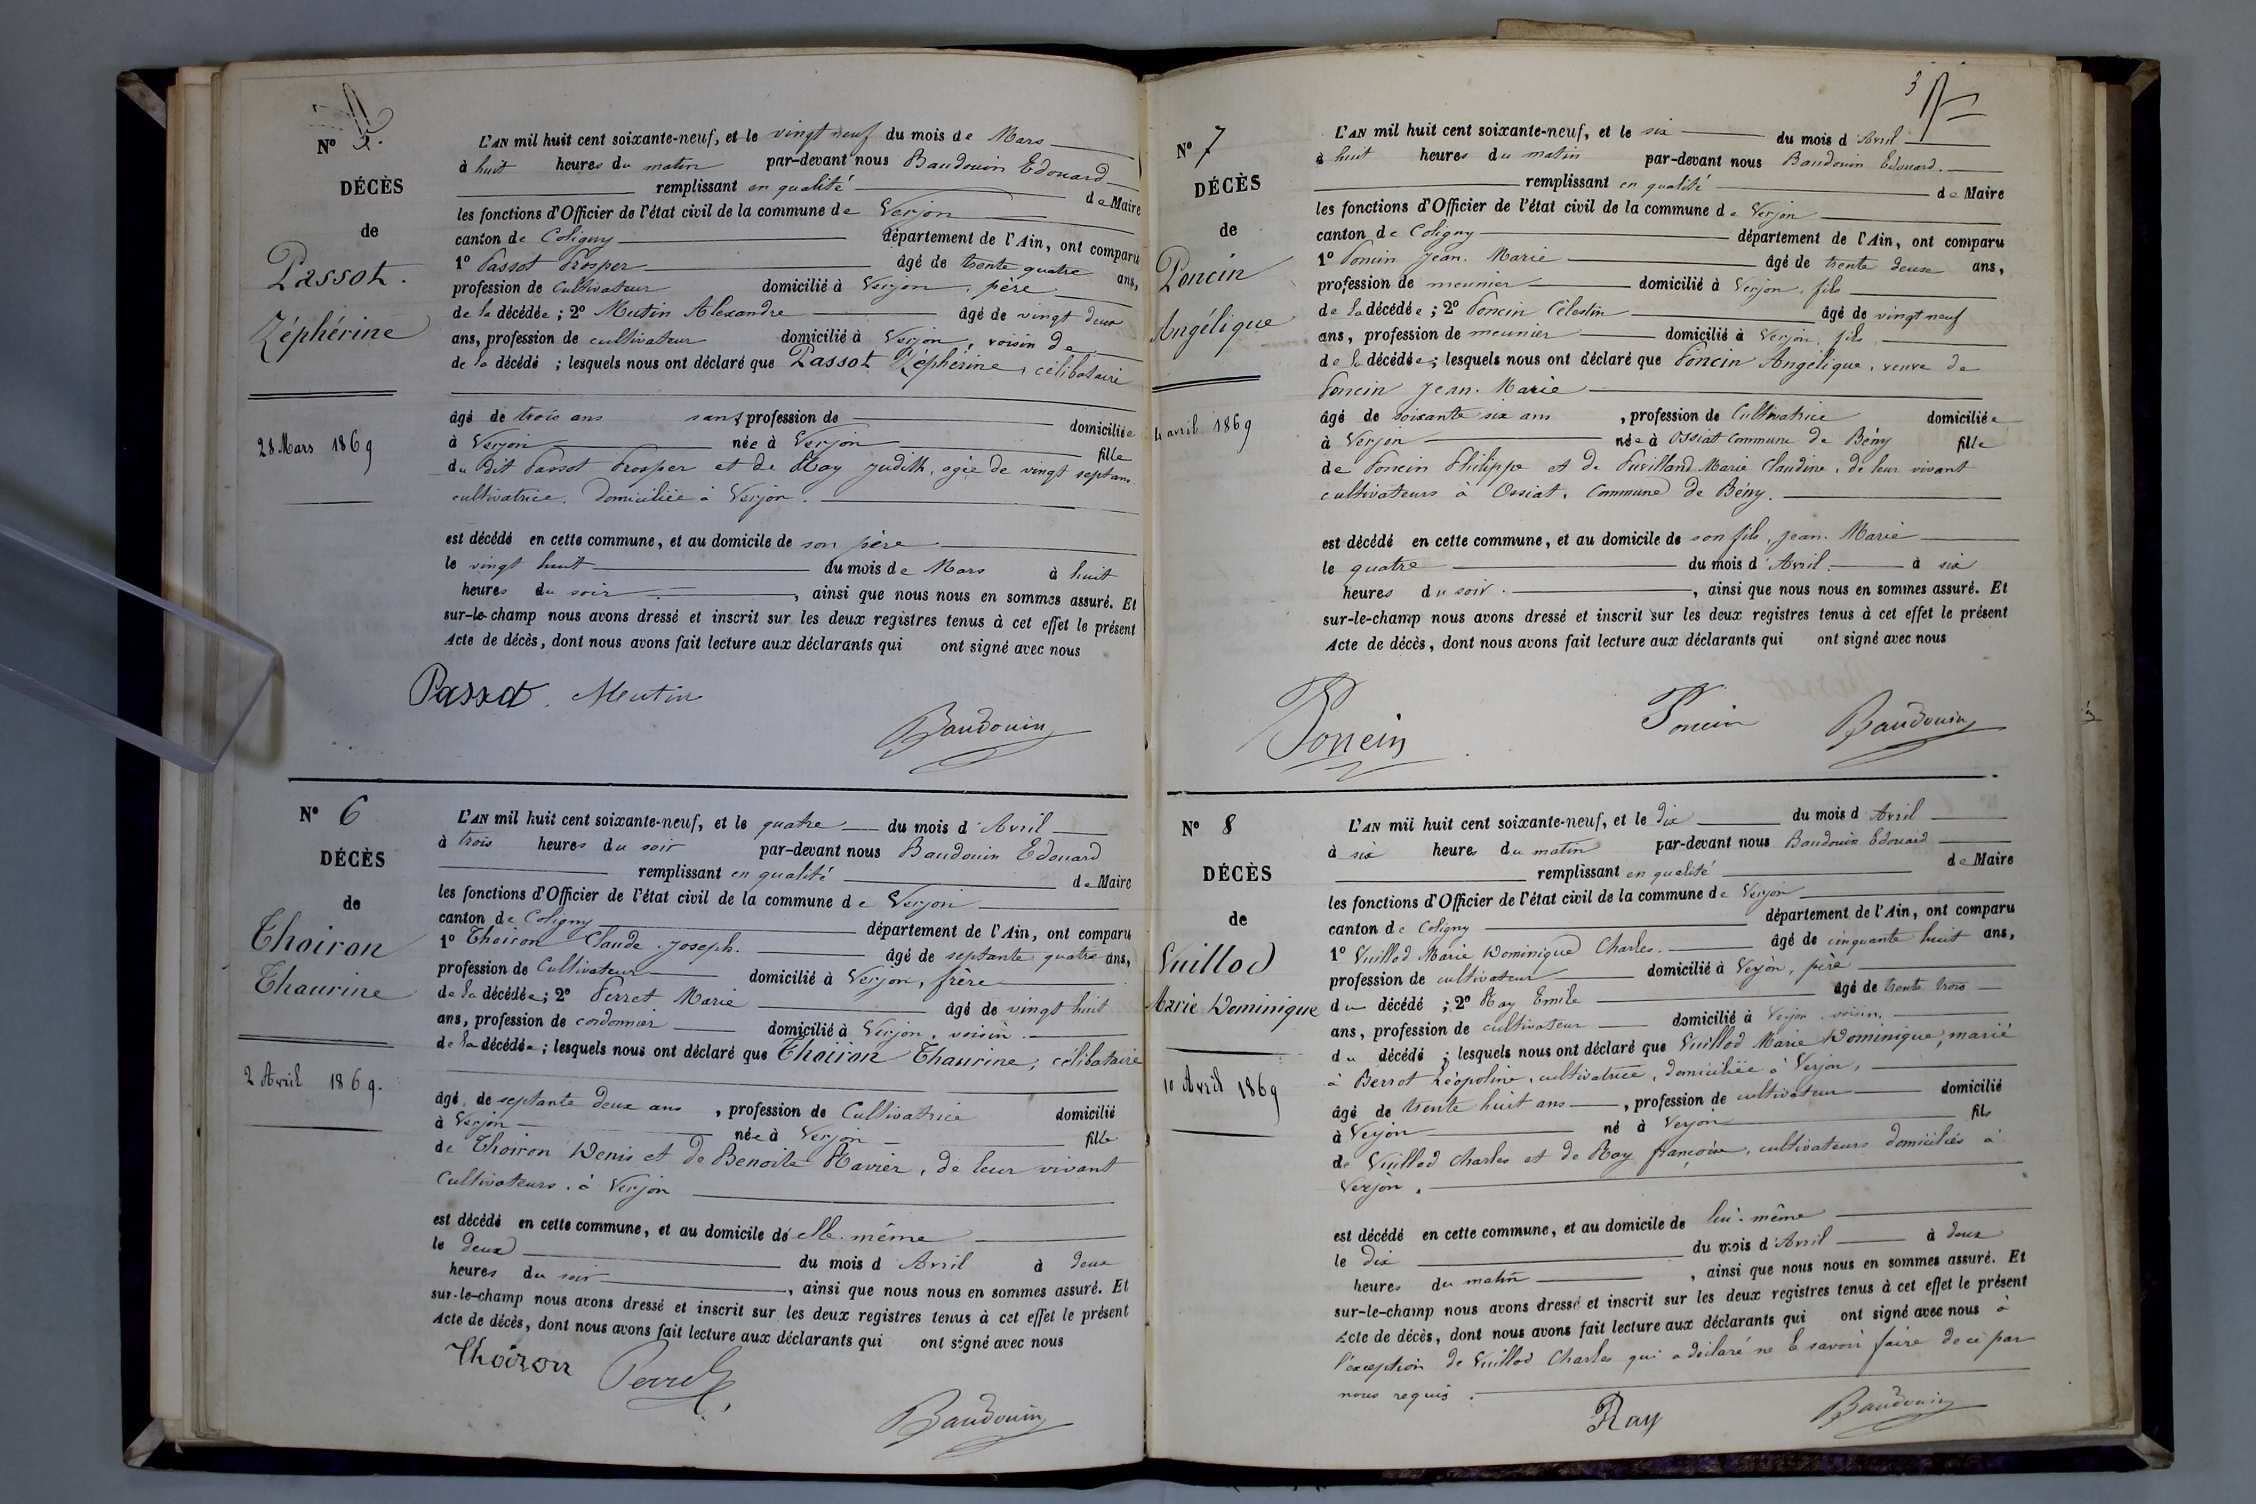 Nº 5.
DÉCÈS
de
Passot.
Zéphérine
28 Mars 1869
L'AN mil huit cent soixante-neuf, et le vingt neuf du mois de Mars
à huit heures du matin par-devant nous Baudouin Edouard
remplissant en qualité de Maire
les fonctions d'Officier de l'état civil de la commune de Verjon
canton de Coligny département de l'Ain, ont comparu
1º Passot Prosper âgé de trente quatre ans,
profession de cultivateur domicilié à Verjon, père
de la décédée ; 2º Mutin Alexandre âgé de vingt deux
ans, profession de cultivateur domicilié à Verjon, voisin de
de la décédé ; lesquels nous ont déclaré que Passot Zéphérine, célibataire
âgé de trois ans sans profession de domiciliée
à Verjon née à Verjon fille
du dit Passot Prosper et de Ray Judith, agée de vingt sept ans
cultivatrice, domiciliée à Verjon.
est décédé en cette commune, et au domicile de son père
le vingt huit du mois de Mars à huit
heures du soir, ainsi que nous nous en sommes assuré. Et
sur-le-champ nous avons dressé et inscrit sur les deux registres tenus à cet effet le présent
Acte de décès, dont nous avons fait lecture aux déclarants qui ont signé avec nous
Passot. Mutin
Baudouin
Nº 6
DÉCÈS
de
Thoiron
Thaurine
2 Avril 1869.
L'AN mil huit cent soixante-neuf, et le quatre du mois d'Avril
à trois heures du soir par-devant nous Baudouin Edouard
remplissant en qualité de Maire
les fonctions d'Officier de l'état civil de la commune de Verjon
canton de Coligny département de l'Ain, ont comparu
1º Thoiron Claude-Joseph. âgé de septante quatre ans,
profession de Cultivateur domicilié à Verjon, frère
de la décédée ; 2º Perret Marie âgé de vingt huit
ans, profession de cordonnier domicilié à Verjon, voisin
de la décédée ; lesquels nous ont déclaré que Thoiron Thaurine, célibataire
âgé de septante deux ans, profession de Cultivatrice domicilié
à Verjon née à Verjon fille
de Thoiron Denis et de Benoite Ravier, de leur vivant
Cultivateurs à Verjon
est décédé en cette commune, et au domicile de elle-même
le deux du mois d'Avril à deux
heures du soir, ainsi que nous nous en sommes assuré. Et
sur-le-champ nous avons dressé et inscrit sur les deux registres tenus à cet effet le présent
Acte de décès, dont nous avons fait lecture aux déclarants qui ont signé avec nous
Thoiron Perret
Baudouin
3
Nº 7
DÉCÈS
de
Poncin
Angélique
4 avril 1869
L'AN mil huit cent soixante-neuf, et le six du mois d'Avril
à huit heures du matin par-devant nous Baudouin Edouard.
remplissant en qualité de Maire
les fonctions d'Officier de l'état civil de la commune de Verjon
canton de Coligny département de l'Ain, ont comparu
1º Poncin Jean-Marie âgé de trente deux ans,
profession de meunier domicilié à Verjon, fils
de la décédée ; 2º Poncin Célestin âgé de vingt neuf
ans, profession de meunier domicilié à Verjon, fils
de la décédée ; lesquels nous ont déclaré que Poncin Angélique, veuve de
Poncin Jean-Marie
âgé de soixante six ans, profession de Cultivatrice domiciliée
à Verjon née à Ossiat commune de Bény fille
de Poncin Philippe et de Puvilland Marie Claudine, de leur vivant
cultivateurs à Ossiat, commune de Bény.
est décédé en cette commune, et au domicile de son fils, Jean-Marie
le quatre du mois d'Avril à six
heures du soir, ainsi que nous nous en sommes assuré. Et
sur-le-champ nous avons dressé et inscrit sur les deux registres tenus à cet effet le présent
Acte de décès, dont nous avons fait lecture aux déclarants qui ont signé avec nous
Poncin Poncin Baudouin
Nº 8
DÉCÈS
de
Vuillod
Marie Dominique
10 Avril 1869
L'AN mil huit cent soixante-neuf, et le dix du mois d'Avril
à six heures du matin par-devant nous Baudouin Edouard
remplissant en qualité de Maire
les fonctions d'Officier de l'état civil de la commune de Verjon
canton de Coligny département de l'Ain, ont comparu
1º Vuillod Marie Dominique Charles. âgé de cinquante huit ans,
profession de cultivateur domicilié à Verjon, père
du décédé ; 2º Ray Emile âgé de trente trois
ans, profession de cultivateur domicilié à Verjon, voisin,
du décédé ; lesquels nous ont déclaré que Vuillod Marie Dominique, marié
à Berrot Léopoline, cultivatrice, domiciliée à Verjon,
âgé de trente huit ans, profession de cultivateur domicilié
à Verjon né à Verjon fils
de Vuillod Charles et de Ray françoise, cultivateurs domiciliés à
Verjon.
est décédé en cette commune, et au domicile de lui-même
le dix du mois d'Avril à deux
heures du matin, ainsi que nous nous en sommes assuré. Et
sur-le-champ nous avons dressé et inscrit sur les deux registres tenus à cet effet le présent
Acte de décès, dont nous avons fait lecture aux déclarants qui ont signé avec nous à
l'exception de Vuillod Charles qui a déclaré ne le savoir faire de ce par
nous requis.
Ray Baudouin